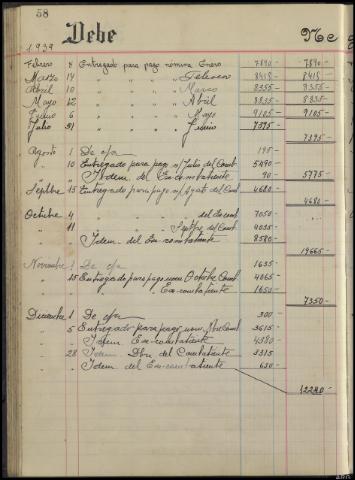 58
Debe
Ne c
1939
Febrero 8 Entregado para pago nómina Enero 7890- 7890-
Marzo 14 " " " " Febrero 8415- 8415-
Abril 10 " " " " Marzo 8355- 8355-
Mayo 12 " " " " Abril 8835- 8835-
Junio 6 " " " " Mayo 9105- 9105-
Julio 31 " " " " Junio 7395-
7395-
Agosto 1 De c/a 195-
" 10 Entregado para pago n/ Julio del Comb 5490-
" Idem del Ex-combatiente 90 5775-
Sepbre 15 Entregado para pago n/ Agosto del Comb 4680-
4680-
Octubre 4 " " " " del Excomb 7050-
" 11 " " " " Septbre del Comb 4035-
" Idem. del Ex-combatiente 8580-
19665-
Noviembre 1 De c/a 1635-
" 15 Entregado para pago nom Octubre Comb 4065-
" " Ex-combatiente 1650-
7350-
Diciembre 1 De c/a 300-
" 5 Entregado para pago nom Nbre Comb 3615-
" Idem Ex-combatiente 4380-
" 28 Idem Dbre del Combatiente 3315
" Idem del Ex-combatiente 630-
12240-